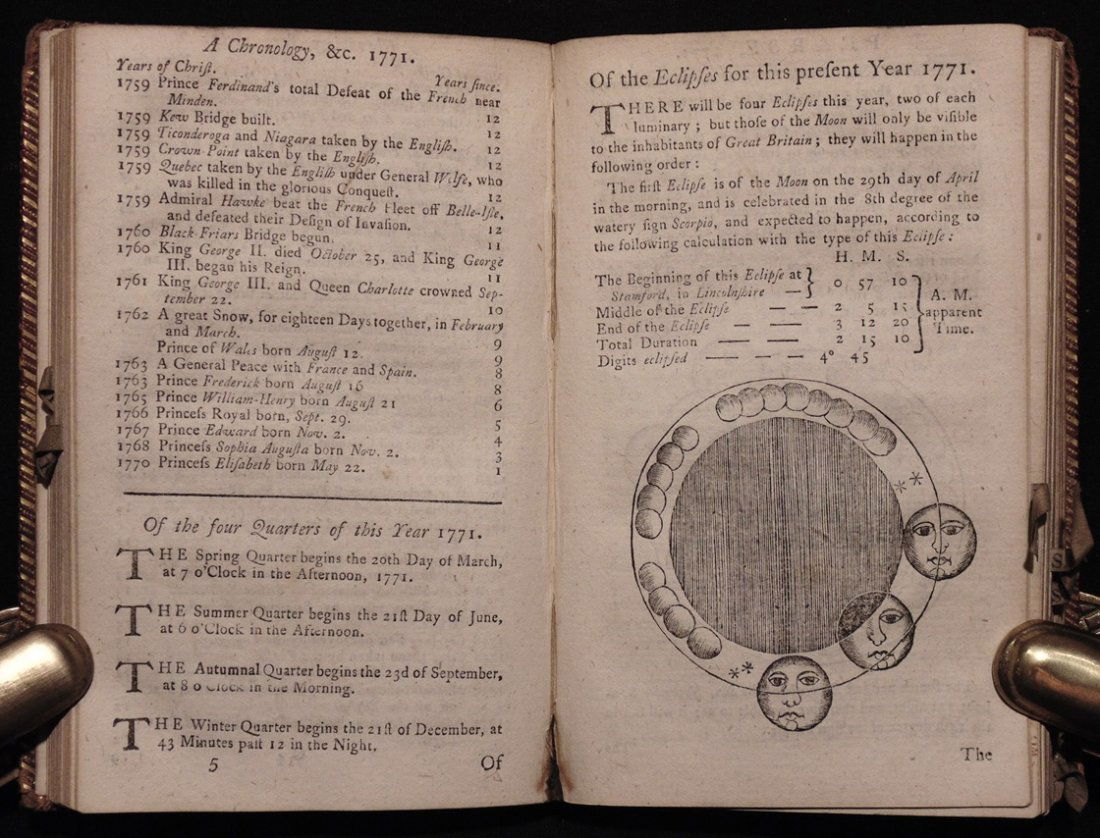 A Chronology, &c. 1771.
Years of Chriſt.
Years ſince.
1759 Prince Ferdinand's total Defeat of the French near
Minden. 12
1759 Kew Bridge built. 12
1759 Ticonderoga and Niagara taken by the Engliſh. 12
1759 Crown-Point taken by the Engliſh. 12
1759 Quebec taken by the Engliſh under General Wolfe, who
was killed in the glorious Conqueſt. 12
1759 Admiral Hawke beat the French Fleet off Belle-Iſle,
and defeated their Deſign of Invaſion. 12
1760 Black-Friars Bridge begun. 11
1760 King George II. died October 25, and King George
III. began his Reign. 11
1761 King George III. and Queen Charlotte crowned Sep-
tember 22. 10
1762 A great Snow, for eighteen Days together, in February
and March. 9
Prince of Wales born Auguſt 12. 9
1763 A General Peace with France and Spain. 8
1763 Prince Frederick born Auguſt 16 8
1765 Prince William-Henry born Auguſt 21 6
1766 Princeſs Royal born, Sept. 29. 5
1767 Prince Edward born Nov. 2. 4
1768 Princeſs Sophia Auguſta born Nov. 2. 3
1770 Princeſs Eliſabeth born May 22. 1
Of the four Quarters of this Year 1771.
THE Spring Quarter begins the 20th Day of March,
at 7 o'Clock in the Afternoon, 1771.
THE Summer Quarter begins the 21ſt Day of June,
at 6 o'Clock in the Afternoon.
THE Autumnal Quarter begins the 23d of September,
at 8 o'Clock in the Morning.
THE Winter Quarter begins the 21ſt of December, at
43 Minutes paſt 12 in the Night.
5 Of
Of the Eclipſes for this preſent Year 1771.
THERE will be four Eclipſes this year, two of each
luminary; but thoſe of the Moon will only be viſible
to the inhabitants of Great Britain; they will happen in the
following order:
The firſt Eclipſe is of the Moon on the 29th day of April
in the morning, and is celebrated in the 8th degree of the
watery ſign Scorpio, and expected to happen, according to
the following calculation with the type of this Eclipſe:
H. M. S.
The Beginning of this Eclipſe at
Stamford, in Lincolnſhire — 0 57 10
Middle of the Eclipſe — — 2 5 15
End of the Eclipſe — — 3 12 20
Total Duration — — 2 15 10
A. M.
apparent
Time.
Digits eclipſed — — — 4° 45
The